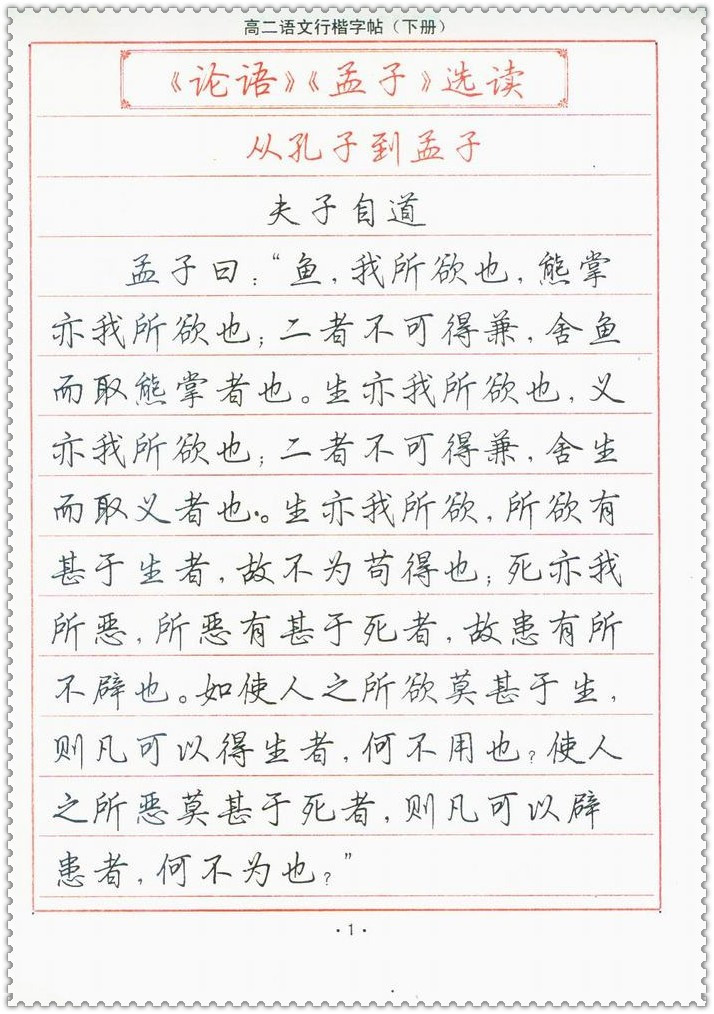 高二语文行楷字帖（下册）
《论语》《孟子》选读
从孔子到孟子
夫子自道
孟子曰：“鱼，我所欲也，熊掌
亦我所欲也；二者不可得兼，舍鱼
而取熊掌者也。生亦我所欲也，义
亦我所欲也；二者不可得兼，舍生
而取义者也。生亦我所欲，所欲有
甚于生者，故不为苟得也；死亦我
所恶，所恶有甚于死者，故患有所
不辟也。如使人之所欲莫甚于生，
则凡可以得生者，何不用也？使人
之所恶莫甚于死者，则凡可以辟
患者，何不为也？”
·1·